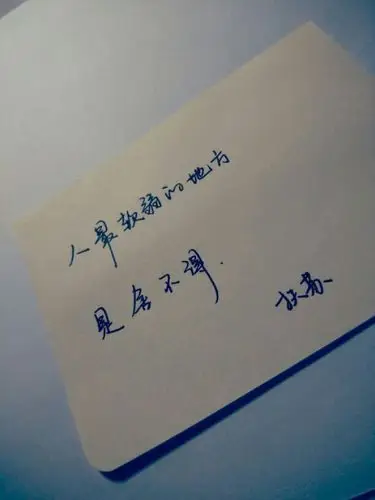 人最软弱的地方
是舍不得.
扶苏